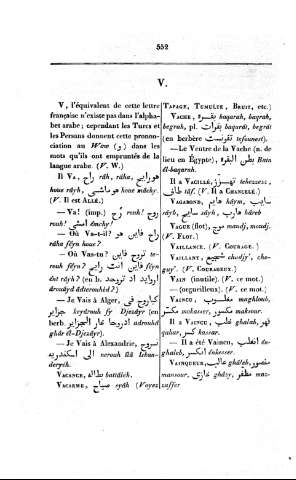 552
V.
V, l'équivalent de cette lettre
française n'existe pas dans l'alpha-
bet arabe; cependant les Turcs et
les Persans donnent cette pronon-
ciation au Waw (و) dans les
mots qu'ils ont empruntés de la
langue arabe. (V. W.)
Il Va, راح râh, râha, هو رايح
houe râyh, هو ماشي houe mâchy.
(V. Il est Allé.)
— Va! (imp.) روح rouh, روح
rouh! امشي émchy!
— Où Va-t-il? راح فاين هو
râha fâyn houe?
— Où Vas-tu? فاين تروح te-
rouh fâyn? فاين انت رايح fâyn
ent râyh? (en b.
— Je Vais à Alger, راح
جزاير keydrouh fy Djezâyr (en
berb. الجزاير
ghâr êl-Djezâyr).
— Je Vais à Alexandrie, نروح
الى اسكندريه nerouh ilä Iskan-
deryéh.
Vacance, بطاله batâleh.
Vacarme, صياح syâh (Voyez
Tapage, Tumulte, Bruit, etc.)
Vache, بقره baqarah, baqrah,
begrah, pl. بقرات baqarât, begrât
(en berbère تفونست tefounest).
— Le Ventre de la Vache (n. de
lieu en Égypte), بطن البقره Batn
êl-baqarah.
Il a Vacillé,
طاف tâf. (V. Il a Chancelé.)
Vagabond, هايم hâym, سايب
sâyb, سايح sâyh, هارب hâreb
Vague (flot), موج moudj, mondj.
(V. Flot.)
Vaillance. (V. Courage.)
Vaillant, شجيع chodjy', cho-
guy'. (V. Courageux.)
Vain (inutile). (V. ce mot.)
— (orgueilleux). (V. ce mot.)
Vaincu, مغلوب maghloub,
مكسر mokasser, مكسور maksour.
Il a Vaincu, غلب ghaleb, قهر
qahar, كسر kassar.
— Il a été Vaincu, انغلب ên-
ghaleb, انكسر ênkesser.
Vainqueur, غالب ghâleb, منصور
mansour, غازي ghâzy, مظفر moz-
zaffer